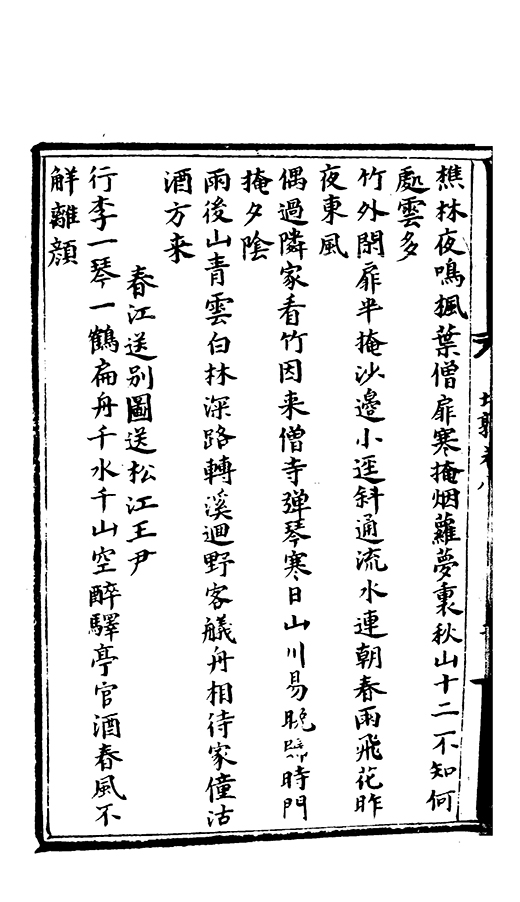 樵林夜鳴楓葉僧扉寒掩烟蘿夢裏秋山十二不知何
處雲多
竹外閒扉半掩沙邊小逕斜通流水連朝春雨飛花昨
夜東風
偶過隣家看竹因来僧寺弹琴寒日山川易晚 時門
掩夕陰
雨後山青雲白林深路轉溪迴野客艤舟相待家僮沽
酒方来
春江送别圖送松江王尹
行李一琴一鶴扁舟千水千山空醉驛亭官酒春風不
觧離顔